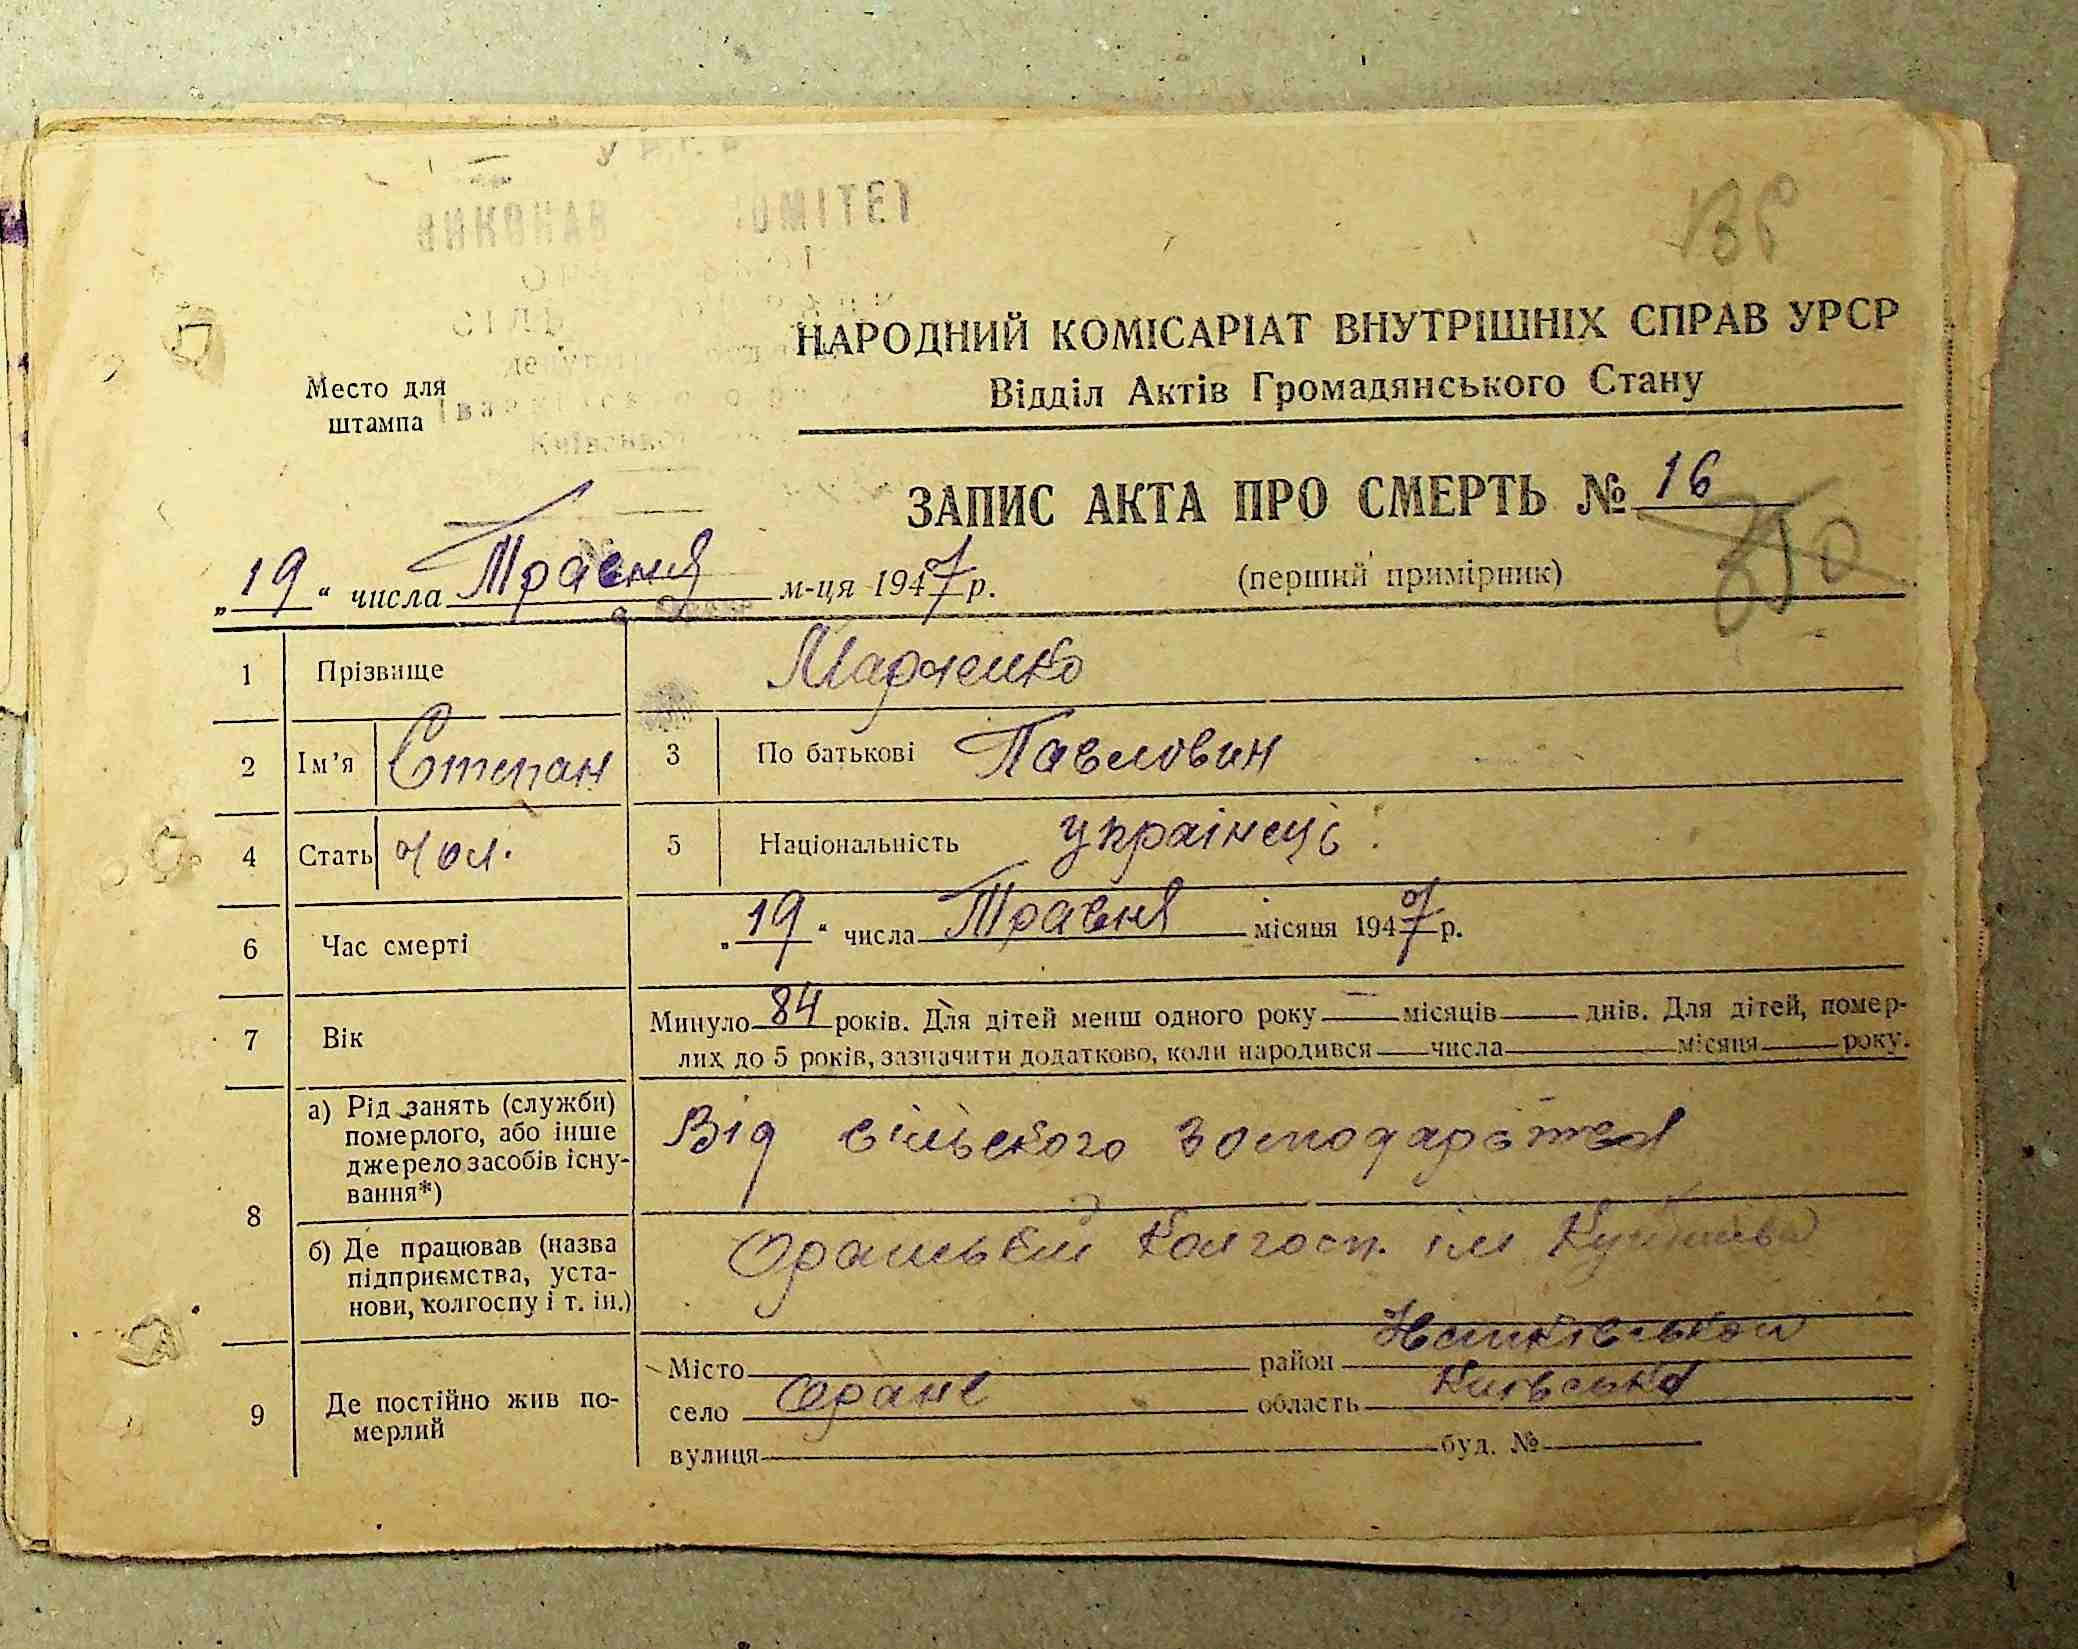 ВИКОНАВ ОМІТЕТ
НАРОДНИЙ КОМІСАРІАТ ВНУТРІШНІХ СПРАВ УРСР
Відділ Актів Громадянського Стану
Место для
штампа
ЗАПИС АКТА ПРО СМЕРТЬ № 16
„19“ числа Травня м-ця 1947 р.
(перший примірник)
1 Прізвище Марченко
2 Ім’я Степан 3 По батькові Павлович
4 Стать чол. 5 Національність українець
6 Час смерті „19“ числа Травня місяця 1947 р.
7 Вік Минуло 84 років. Для дітей менш одного року — місяців днів. Для дітей, помер-
лих до 5 років, зазначити додатково, коли народився числа місяця року.
8 а) Рід занять (служби)
померлого, або інше
джерело засобів існу-
вання*)
Від сільского господарства
б) Де працював (назва
підприємства, уста-
нови, колгоспу і т. ін.)
колгосп. ім
9 Де постійно жив по-
мерлий
Місто район
село Оране область Київська
вулиця буд. №